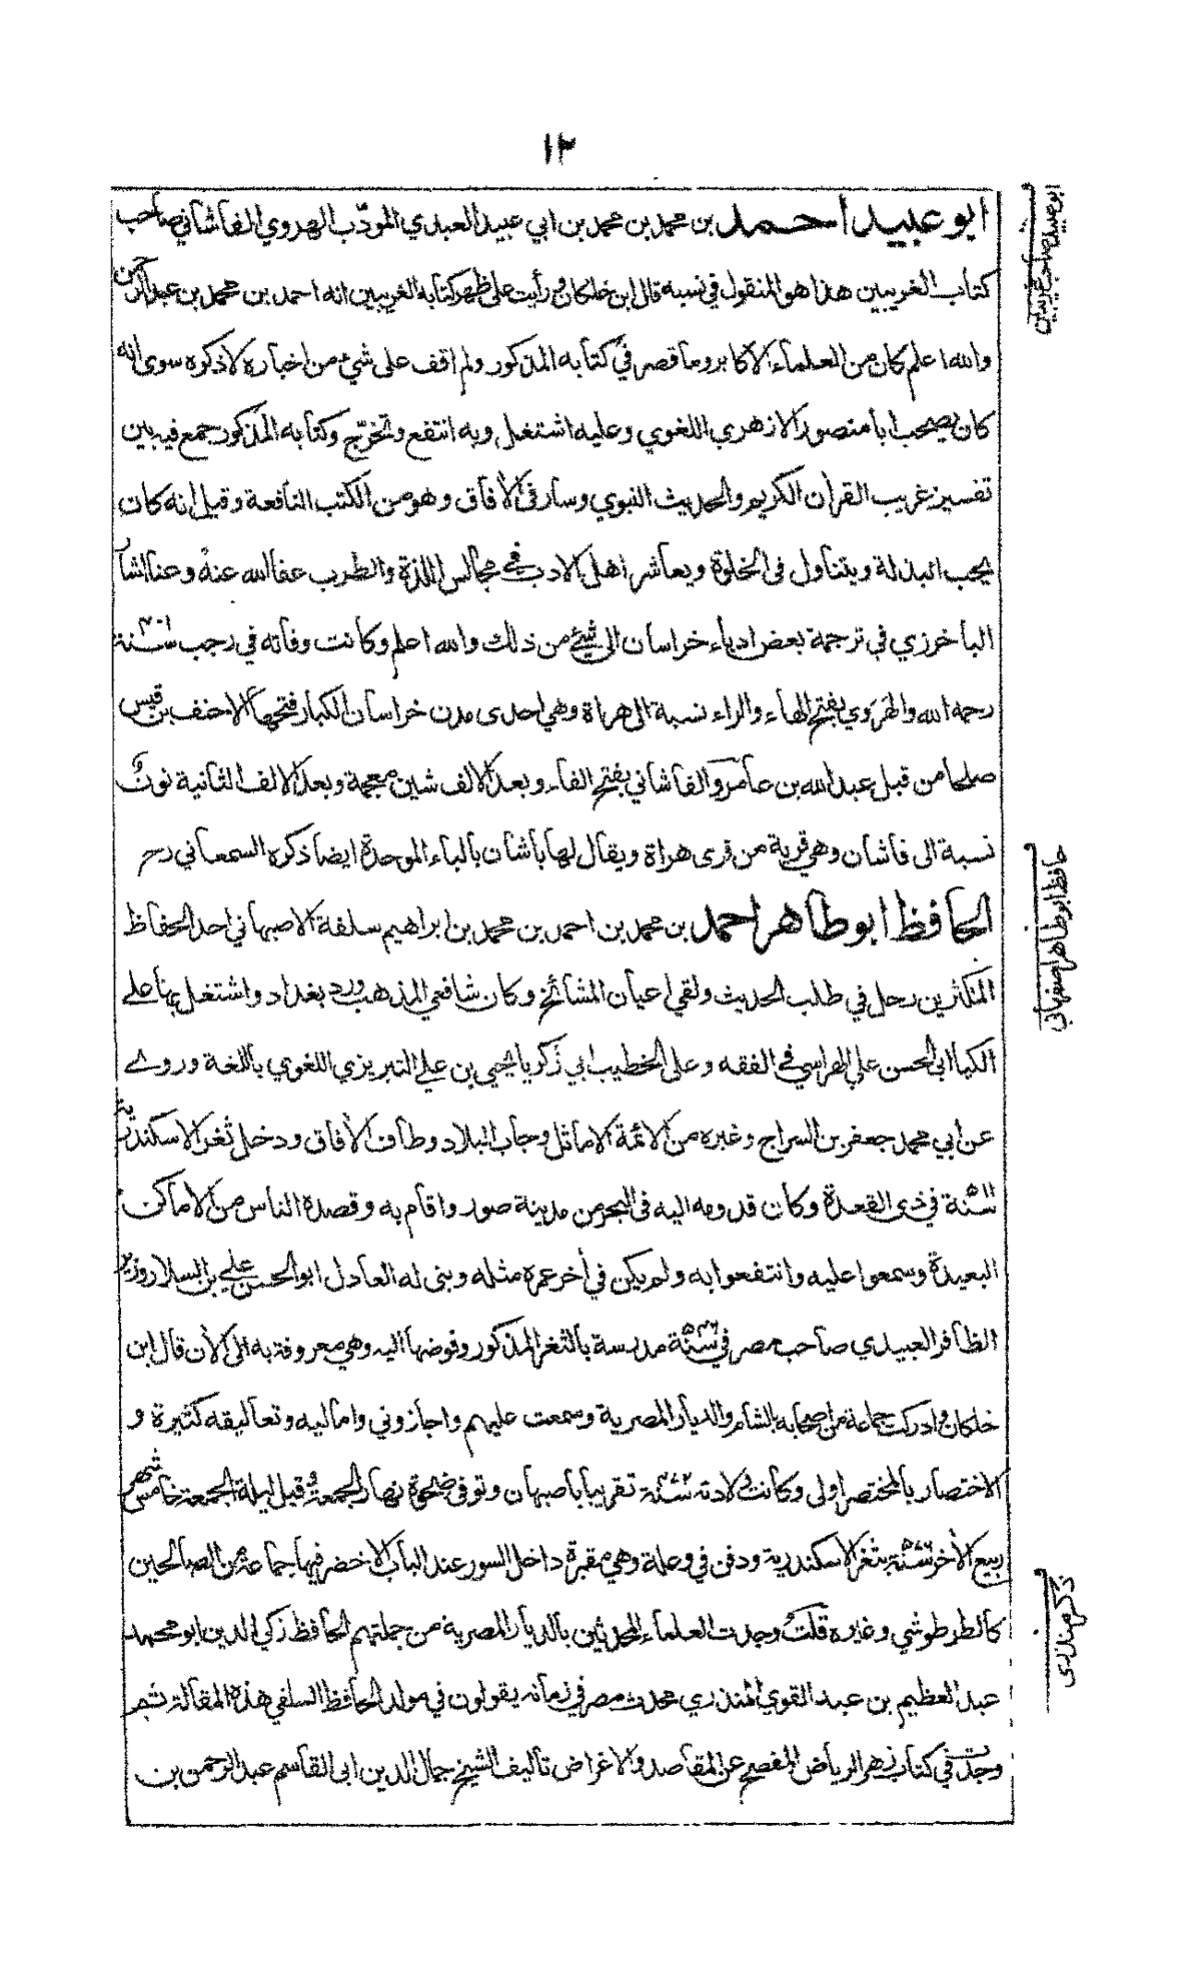 ١٢
ابو عبيد احمد بن محمد بن محمد بن ابي عبيد العبدي المودّب الهروي الفاشاني صاحب
كتاب الغريبين هذا هو المنقول في نسبه قال ابن خلكان و رأيت على ظهر كتابه الغريبين انه احمد بن محمد بن عبد الرحمن
والله اعلم كان من العلماء الاكابر وما قصر في كتابه المذكور ولم اقف على شئ من اخباره لاذكره سوى انه
كان يصحب ابا منصور الازهري اللغوي وعليه اشتغل وبه انتفع وتخرّج وكتابه المذكور جمع فيه بين
تفسير غريب القران الكريم والحديث النبوي وسار في الأفاق وهو من الكتب النافعة وقيل انه كان
يحب البذلة ويتناول فى الخلوة ويعاشر اهل الادب في مجالس اللذة والطرب عفا الله عنه وعنا اشار
الباخرزي في ترجمة بعض ادباء خراسان الى شئ من ذلك والله اعلم وكانت وفاته في رجب سنة
رحمه الله والهَرَوي بفتح الهاء والراء نسبة الى هراة وهي احدى مدن خراسان الكبار فتحها الاحنف بن قيس
صلحا من قبل عبد الله بن عامر والفاشاني بفتح الفاء وبعد الالف شين معجمة وبعد الالف الثانية نون
نسبة الى فاشان وهي قرية من قرى هراة ويقال لها باشان بالباء الموحدة ايضا ذكره السمعاني رحـ
الحافظ ابو طاهر احمد بن محمد بن احمد بن محمد بن ابراهيم سلفة الاصبهاني احد الحفاظ
المكثرين رحل في طلب الحديث ولقي اعيان المشائخ وكان شافعي المذهب ورد بغداد واشتغل بها على
الكيا ابى الحسن علي الهراسي في الفقه وعلى الخطيب ابي زكريا يحيى بن علي التبريزي اللغوي باللغة وروى
عن ابي محمد جعفر بن السراج وغيره من الائمة الاماثل وجاب البلاد وطاف الأفاق ودخل ثغر الاسكندرية
سنة في ذى القعدة وكان قدومه اليه فى البحر من مدينة صور واقام به وقصده الناس من الاماكن
البعيدة وسمعوا عليه وانتفعوا به ولم يكن في أخر عمره مثله وبنى له العادل ابو الحسن علي بن السلار وزير
الظافر العبيدي صاحب مصر في سنة مدرسة بالثغر المذكور وفوضها اليه وهي معروفة به الى الأن قال ابن
خلكان و ادركت جماعة من اصحابه بالشام والديار المصرية وسمعت عليهم واجازوني واماليه وتعاليقه كثيرة و
الاختصار بالمختصر اولى وكانت ولادته سنة تقريبا باصبهان وتوفى ضحوة نهار الجمعة وقيل ليلة الجمعة خامس شهر
ربيع الأخر سنة بثغر الاسكندرية ودفن في وعلة وهي مقبرة داخل السور عند الباب الاخضر فيها جماعة من الصالحين
كالطرطوشي وغيره قلت وجدت العلماء المحدثين بالديار المصرية من جملتهم الحافظ زكي الدين ابو محمد
عبد العظيم بن عبد القوي المنذري محدث مصر في زمانه يقولون في مولد الحافظ السلفي هذه المقالة ثم
وجدت في كتاب زهر الرياض المفصح عن المقاصد والاغراض تأليف الشيخ جمال الدين ابى القاسم عبد الرحمن بن
ابو عبيد صاحب غريبين
حافظ ابو طاهر اصفهانى